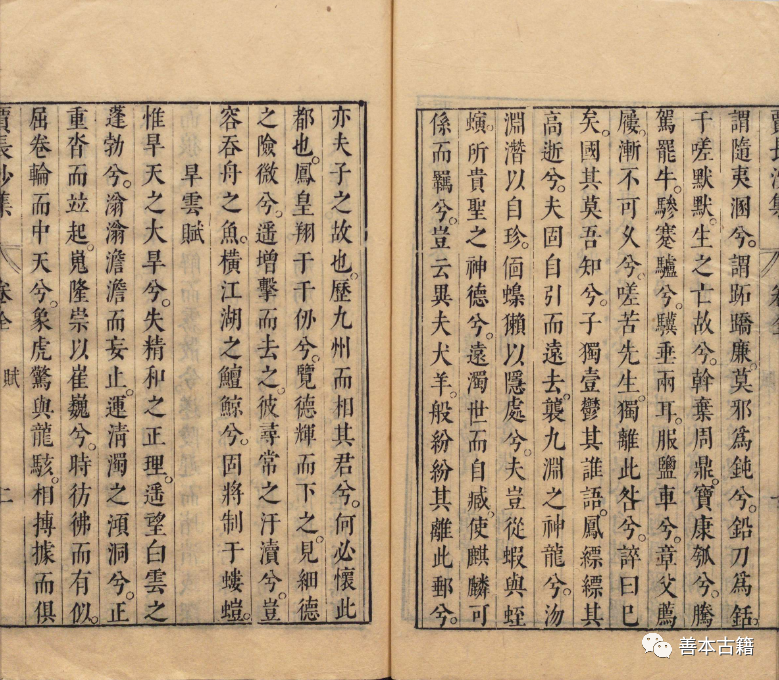 賈長沙集 卷全
謂隨夷溷兮。謂跖蹻廉。莫邪爲鈍兮。鉛刀爲銛。
于嗟默默。生之亡故兮。斡棄周鼎。寶康瓠兮。騰
駕罷牛。驂蹇驢兮。驥垂兩耳。服鹽車兮。章父薦
屨。漸不可久兮。嗟苦先生。獨離此咎兮。誶曰已
矣。國其莫吾知兮。子獨壹鬱其誰語。鳳縹縹其
高逝兮。夫固自引而遠去。襲九淵之神龍兮。沕
淵潛以自珍。偭蟂獺以隱處兮。夫豈從蝦與蛭
螾。所貴聖之神德兮。遠濁世而自臧。使麒麟可
係而羈兮。豈云異夫犬羊。般紛紛其離此郵兮。
亦夫子之故也。歷九州而相其君兮。何必懷此
都也。鳳皇翔于千仞兮。覽德輝而下之。見細德
之險微兮。遥增擊而去之。彼尋常之汙瀆兮。豈
容吞舟之魚。橫江湖之鱣鯨兮。固將制于螻螘。
旱雲賦
惟旱天之大旱兮。失精和之正理。遥望白雲之
蓬勃兮。滃滃澹澹而妄止。運清濁之澒洞兮。正
重沓而竝起。嵬隆崇以崔巍兮。時彷彿而有似。
屈卷輪而中天兮。象虎驚與龍駭。相搏據而俱
賈長沙集 卷全 賦 二
善本古籍